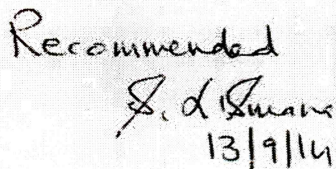 Recommended
13/9/14